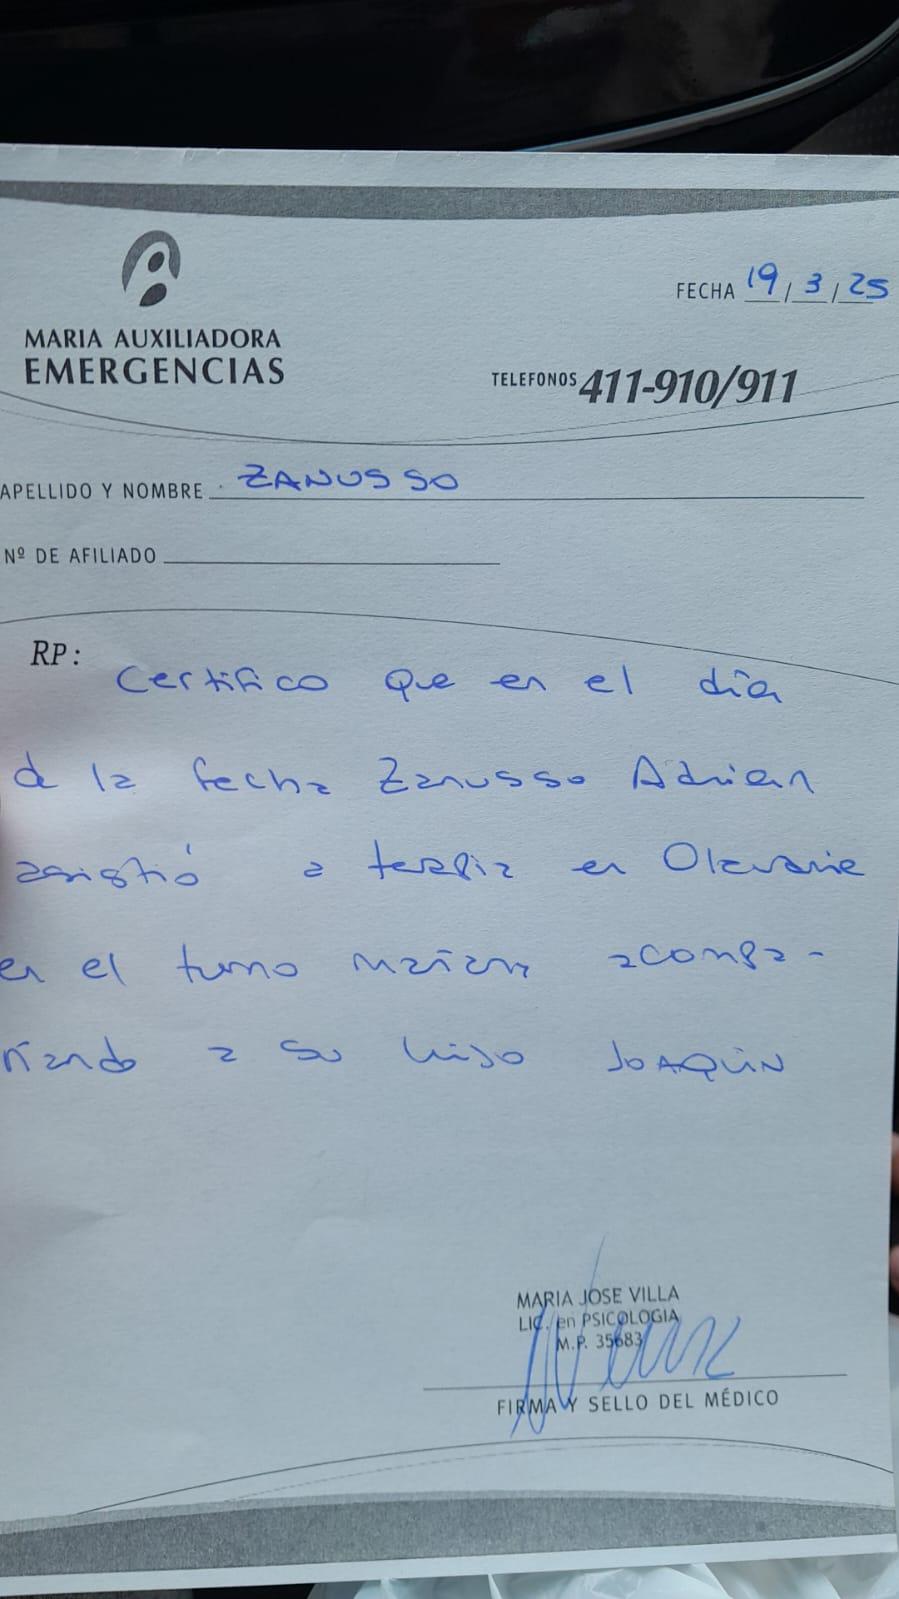 FECHA 19/3/25
MARIA AUXILIADORA
EMERGENCIAS
TELEFONOS 411-910/911
APELLIDO Y NOMBRE ZANUSSO
Nº DE AFILIADO
RP:
Certifico que en el día
de la fecha Zanusso Adrian
asistió a terapia en Olavarria
en el turno mañana acompa-
ñando a su hijo JOAQUIN
MARIA JOSE VILLA
LIC. en PSICOLOGIA
M.P. 35683
FIRMA Y SELLO DEL MÉDICO